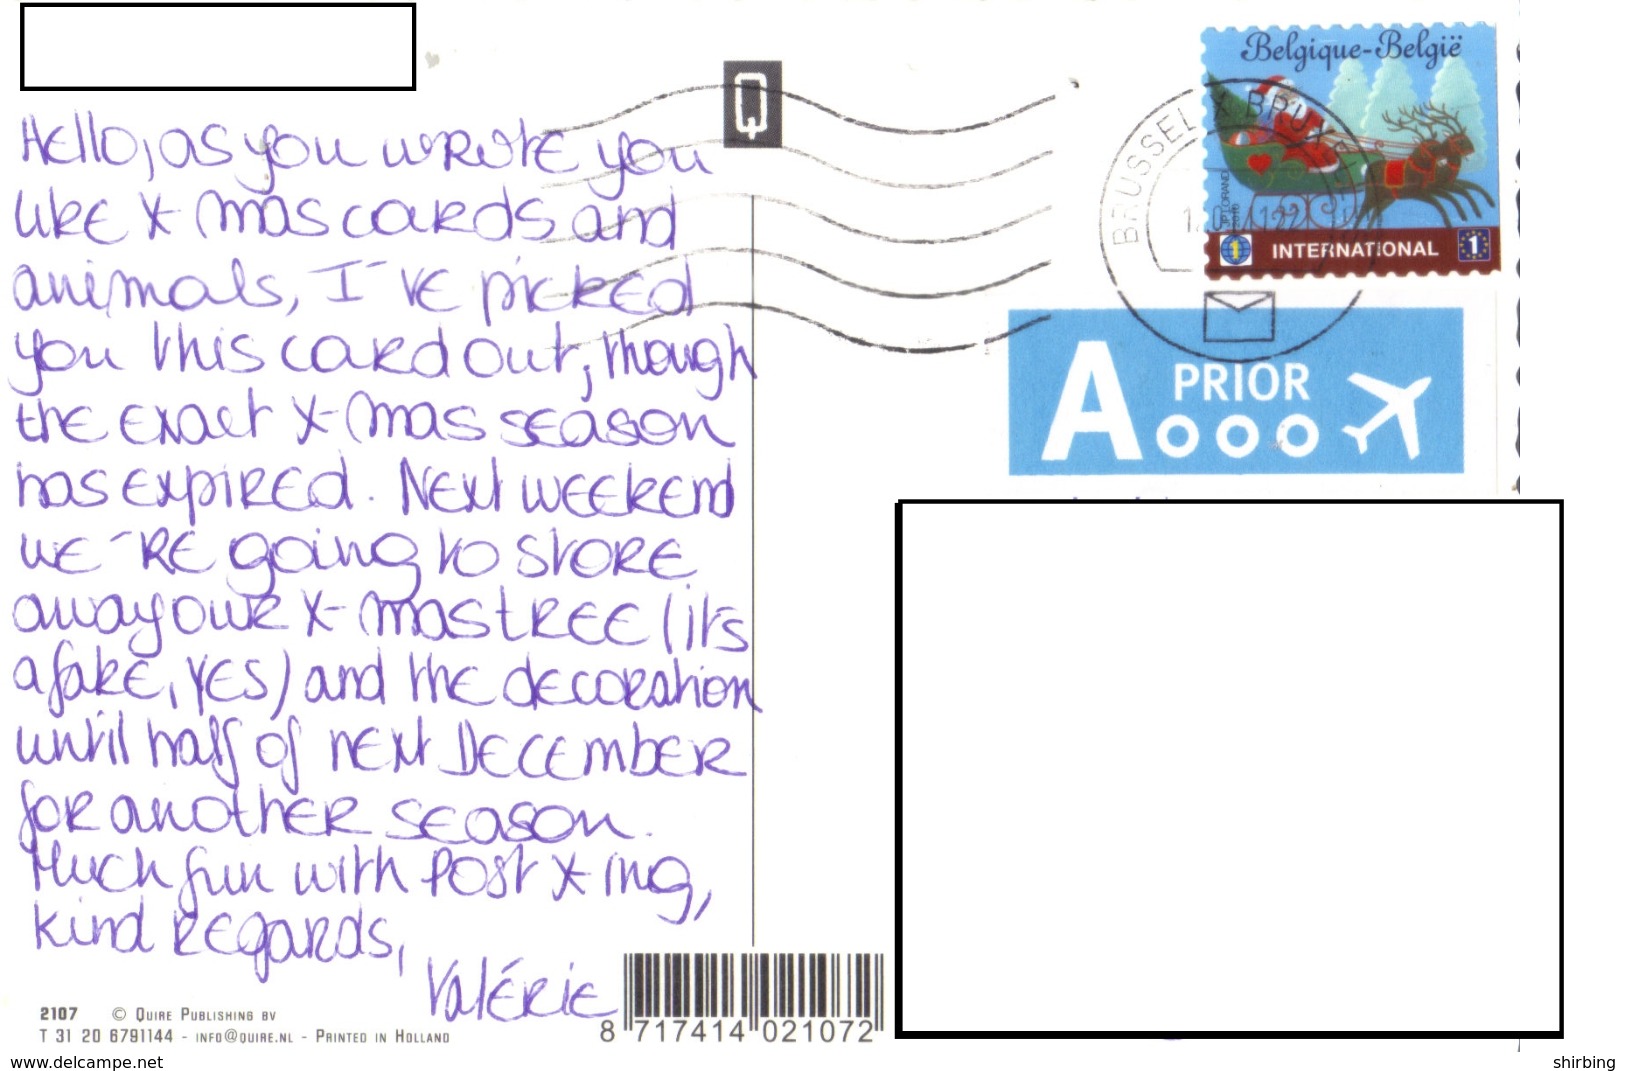 Hello, as you wrote you
like X-mas cards and
animals, I've picked
you this card out, though
the exact X-mas season
has expired. Next weekend
we're going to store
away our X-mas tree (it's
a fake, yes) and the decoration
until half of next December
for another season.
Much fun with Post X-ing,
kind regards,
Valérie
2107 © Quire Publishing bv
T 31 20 6791144 - info@quire.nl - Printed in Holland
8 717414 021072
Q
Belgique-België
JP LORAND
2010
1 INTERNATIONAL 1
BRUSSEL X BRUX
A PRIOR
www.delcampe.net
shirbing